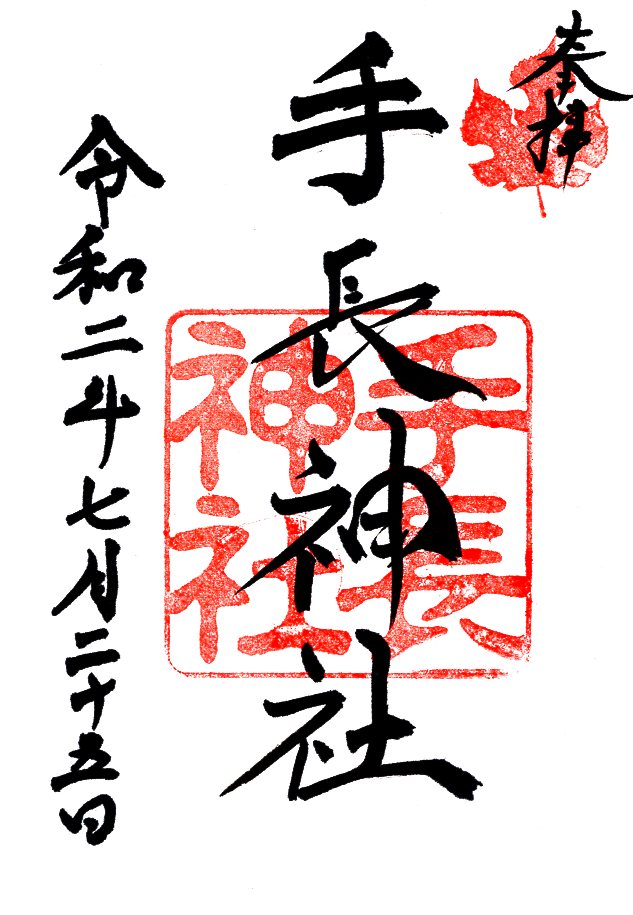 奉拝
手長神社
手長神社
令和二年七月二十五日